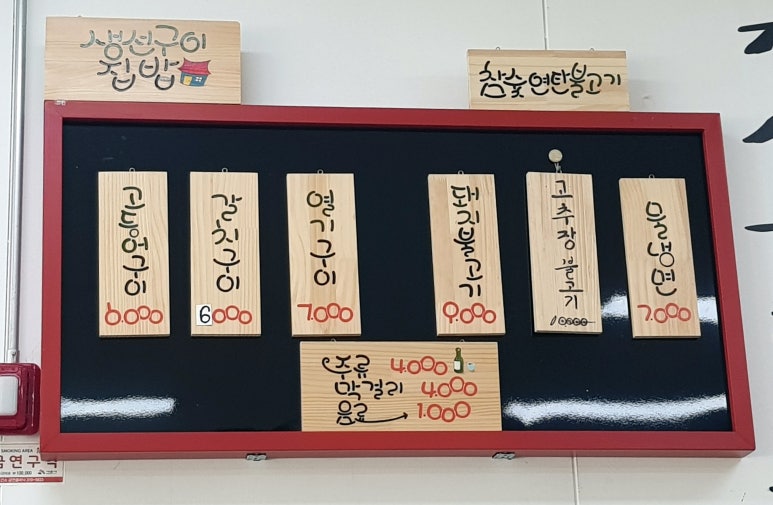 생선구이
집밥
참숯연탄불고기
고등어구이
6.000
갈치구이
6000
열기구이
7.000
돼지불고기
9.000
고추장불고기
물냉면
7.000
주류 4.000
막걸리 4.000
음료 1.000
SMOKING AREA
금연구역